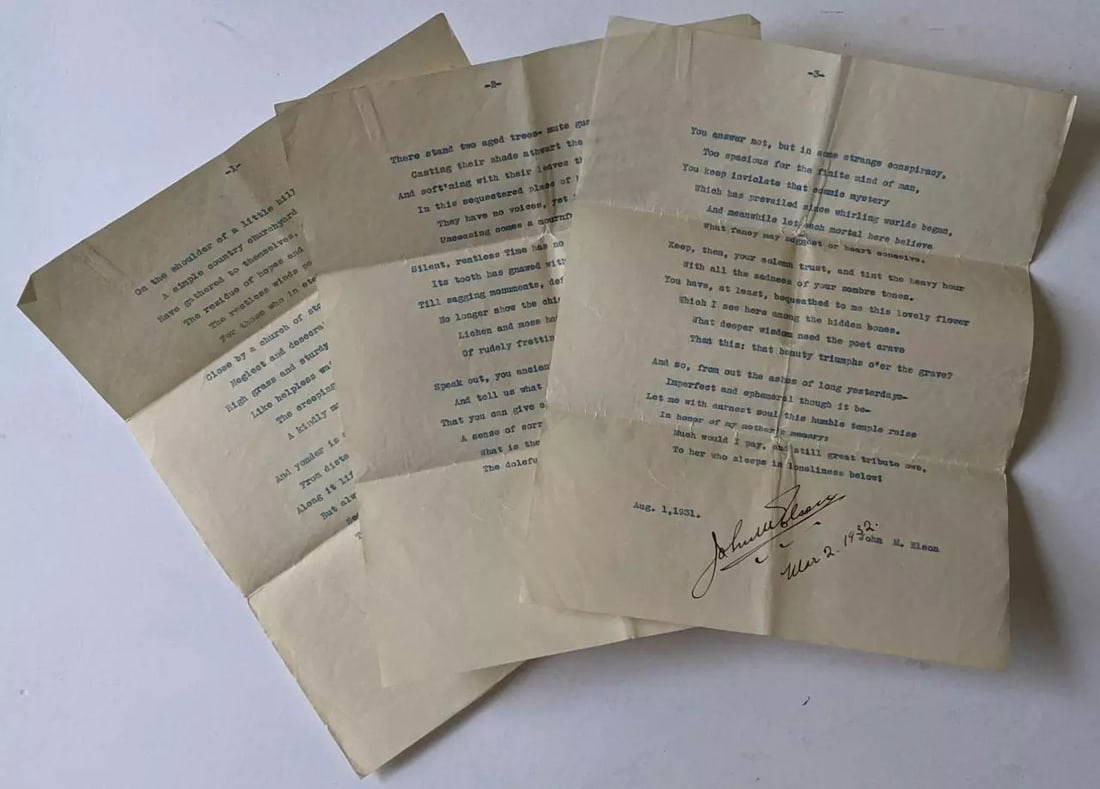 -1-
On the shoulder of a little hill
A simple country churchyard
Have gathered to themselves,
The residue of hopes and
The restless winds
For those who in
Close by a church of
Neglect and
High grass and sturdy
Like helpless
The creeping
A kindly
And yonder is
From
Along it
But
-2-
There stand two aged trees- mute
Casting their shade athwart the
And soft'ning with their leaves
In this sequestered place of
They have no voices, yet
Unceasing comes a
Silent, restless Time has no
Its tooth has gnawed
Till sagging monuments,
No longer show the
Lichen and moss
Of rudely
Speak out, you
And tell us what
That you can give
A sense of
What is the
The
-3-
You answer not, but in some strange conspiracy,
Too spacious for the finite mind of man,
You keep inviolate that cosmic mystery
Which has prevailed since whirling worlds began,
And meanwhile let each mortal here believe
What fancy may suggest or heart conceive.
Keep, then, your solemn trust, and tint the heavy hour
With all the sadness of your sombre tones.
You have, at least, bequeathed to me this lovely flower
Which I see here among the hidden bones.
What deeper wisdom need the poet crave
Than this; that beauty triumphs o'er the grave?
And so, from out the ashes of long yesterdays-
Imperfect and ephemeral though it be-
Let me with earnest soul this humble temple raise
In honor of my mother's memory:
Much would I pay, and still great tribute owe,
To her who sleeps in loneliness below!
Aug. 1,1931.
John M. Elson
Mar 2. 1932.
John M. Elson